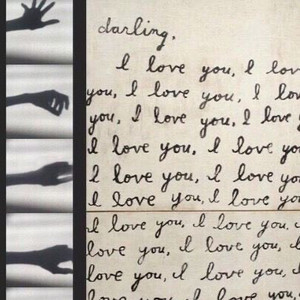 darling,
I love you, I lov
you, I love you, I lov
you, I love you, I love
I love you, I love you,
I love you, I love you,
I love you, I love you,
I love you, I love you, I
love you, I love you, I
love you, I love you, I
love you, I love you,